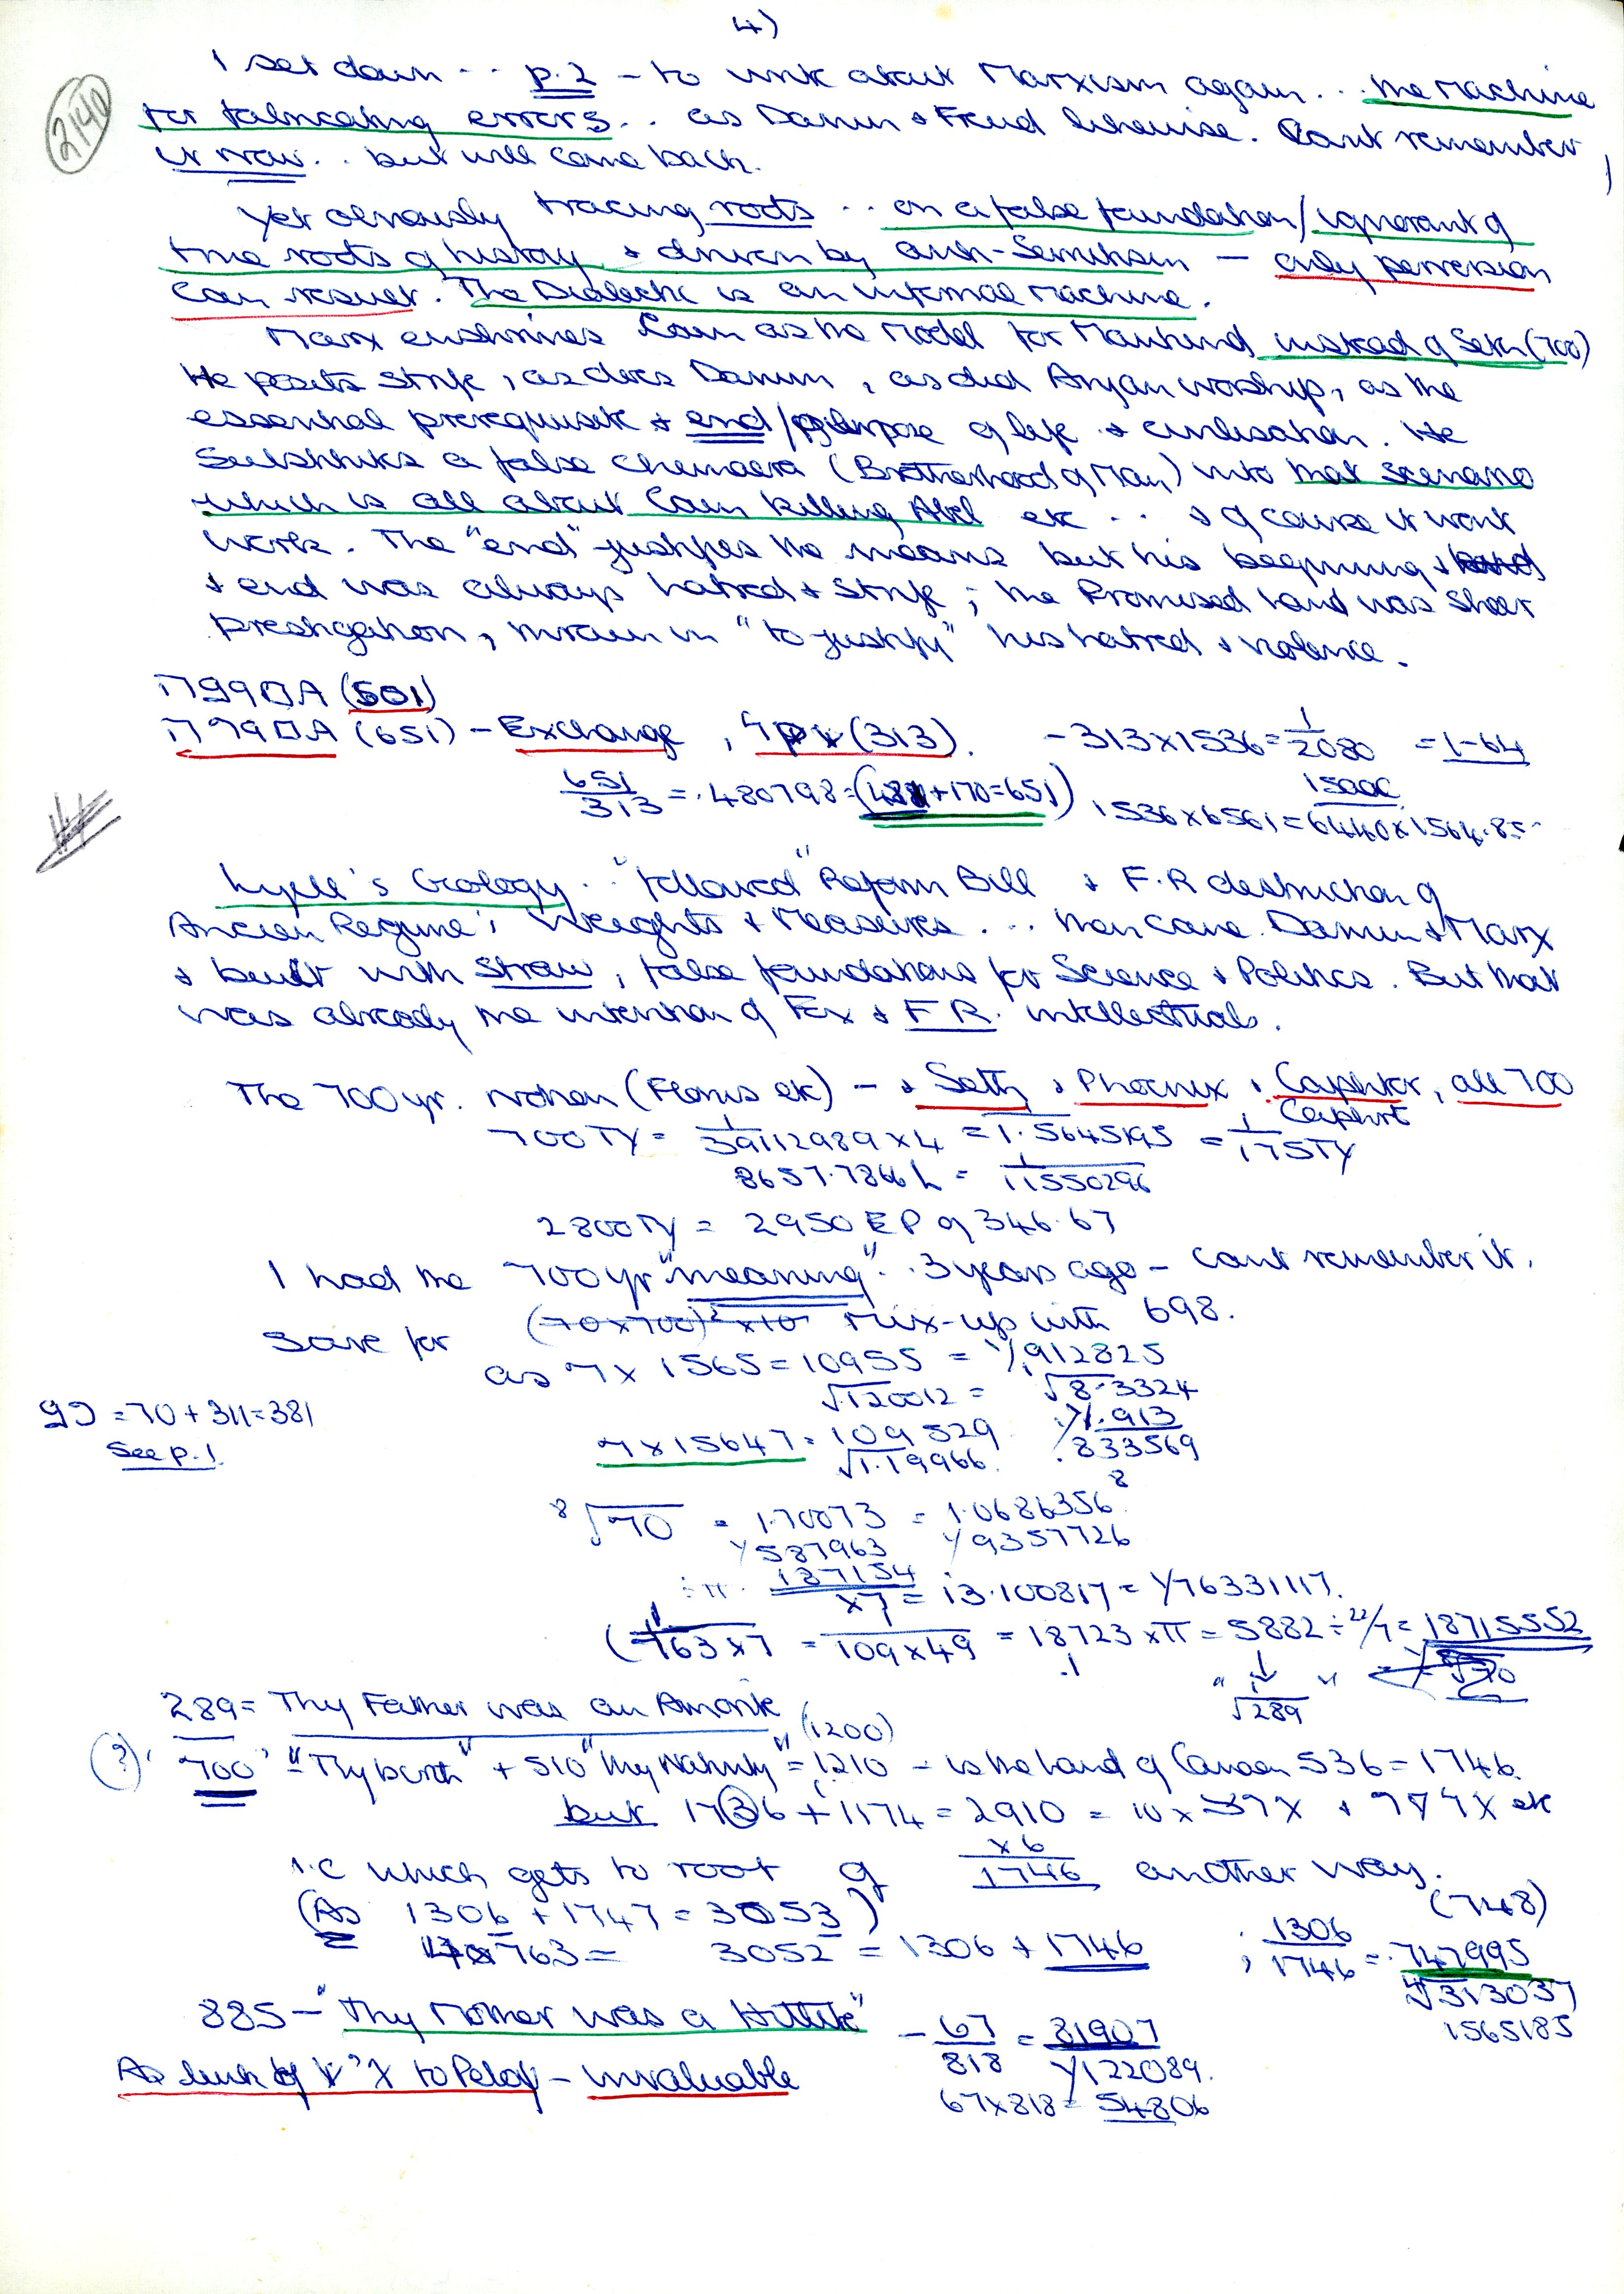 4)
2140
I set down .. p.2 – to write about Marxism again... the Machine
for fabricating errors.. as Darwin & Freud likewise. Can't remember
it now.. but will come back.
Yet obviously tracing roots .. on a false foundation/ignorant of
true roots of history, & driven by anti-Semitism – only perversion
can result. The Dialectic is an infernal Machine.
Marx enshrines Cain as the Model for Mankind instead of Seth (700)
He posits strife, as does Darwin, as did Aryan worship, as the
essential prerequisite & end/purpose of life & civilisation. He
Substitutes a false chimaera (Brotherhood of Man) into that scenario
which is all about Cain killing Abel etc .. & of course it won't
work. The "end" justifies the means but his beginning
& end was always hatred & strife; the Promised Land was sheer
prestigation, thrown in "to justify" his hatred & violence.
(501)
(651) – Exchange, (313). – 313x1536 = 1/2080 = 1-64
651/313 = .480798 = (481+170=651) 1536x6561 = 6440x1564.85..
Lyell's Geology.. "followed" Reform Bill & F.R destruction of
Ancien Regime's Weights & Measures... then came Darwin & Marx
& built with straw, false foundations for Science & Politics. But that
was already the intention of Fox & F R. intellectuals.
The 700 yr. notion (Florus etc) – & Seth, & Phoenix, & Caphtor, all 700
Caphrot
700 TY = 1/39112989 x 4 = 1.5645195 = 1/175TY
8657.7866 L = 1/11550296
2800 TY = 2950 EP of 346.67
I had the 700 yr "meaning".. 3 years ago – can't remember it.
Save for (70x700)² x10 mix-up with 698.
as 7 x 1565 = 10955 = 1/.912825
√1.20012 = √8.3324
7 x 15647 = 109529 1/.913
√1.19966. .833569
= 70 + 311 = 381
See p.1
8√70 = 1.70073 = 1.0686356⁸
1/587963 1/9357726
÷π. 187154/x7 = 13.100817 = 1/76331117.
(1/763x7 = 1/109x49 = 18723 xπ = 5882 ÷ 22/7 = 18715552
"1/√289"
289 = Thy Father was an Amorite
(?) 700 = "Thy birth" + 510 "thy Nativity" = 1210 – is the land of Canaan 536 = 1746.
(1200)
but 1736 + 1174 = 2910 = 10 x etc
i.e which gets to root of x6/1746 another way.
(As 1306 + 1747 = 3053)
763 = 3052 = 1306 + 1746 ; 1306/1746 = .747995
(748)
313037
1565185
885 – "Thy Mother was a Hittite" – 67/818 = 81907
1/122089.
67x818 = 54806
As link of to Peloψ – invaluable